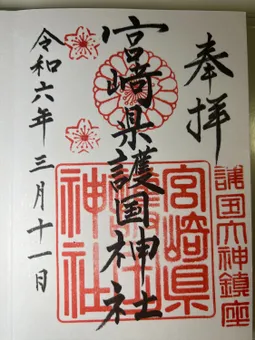 奉拝
護国大神鎮座
宮崎県護国神社
宮崎県護国神社
令和六年三月十一日